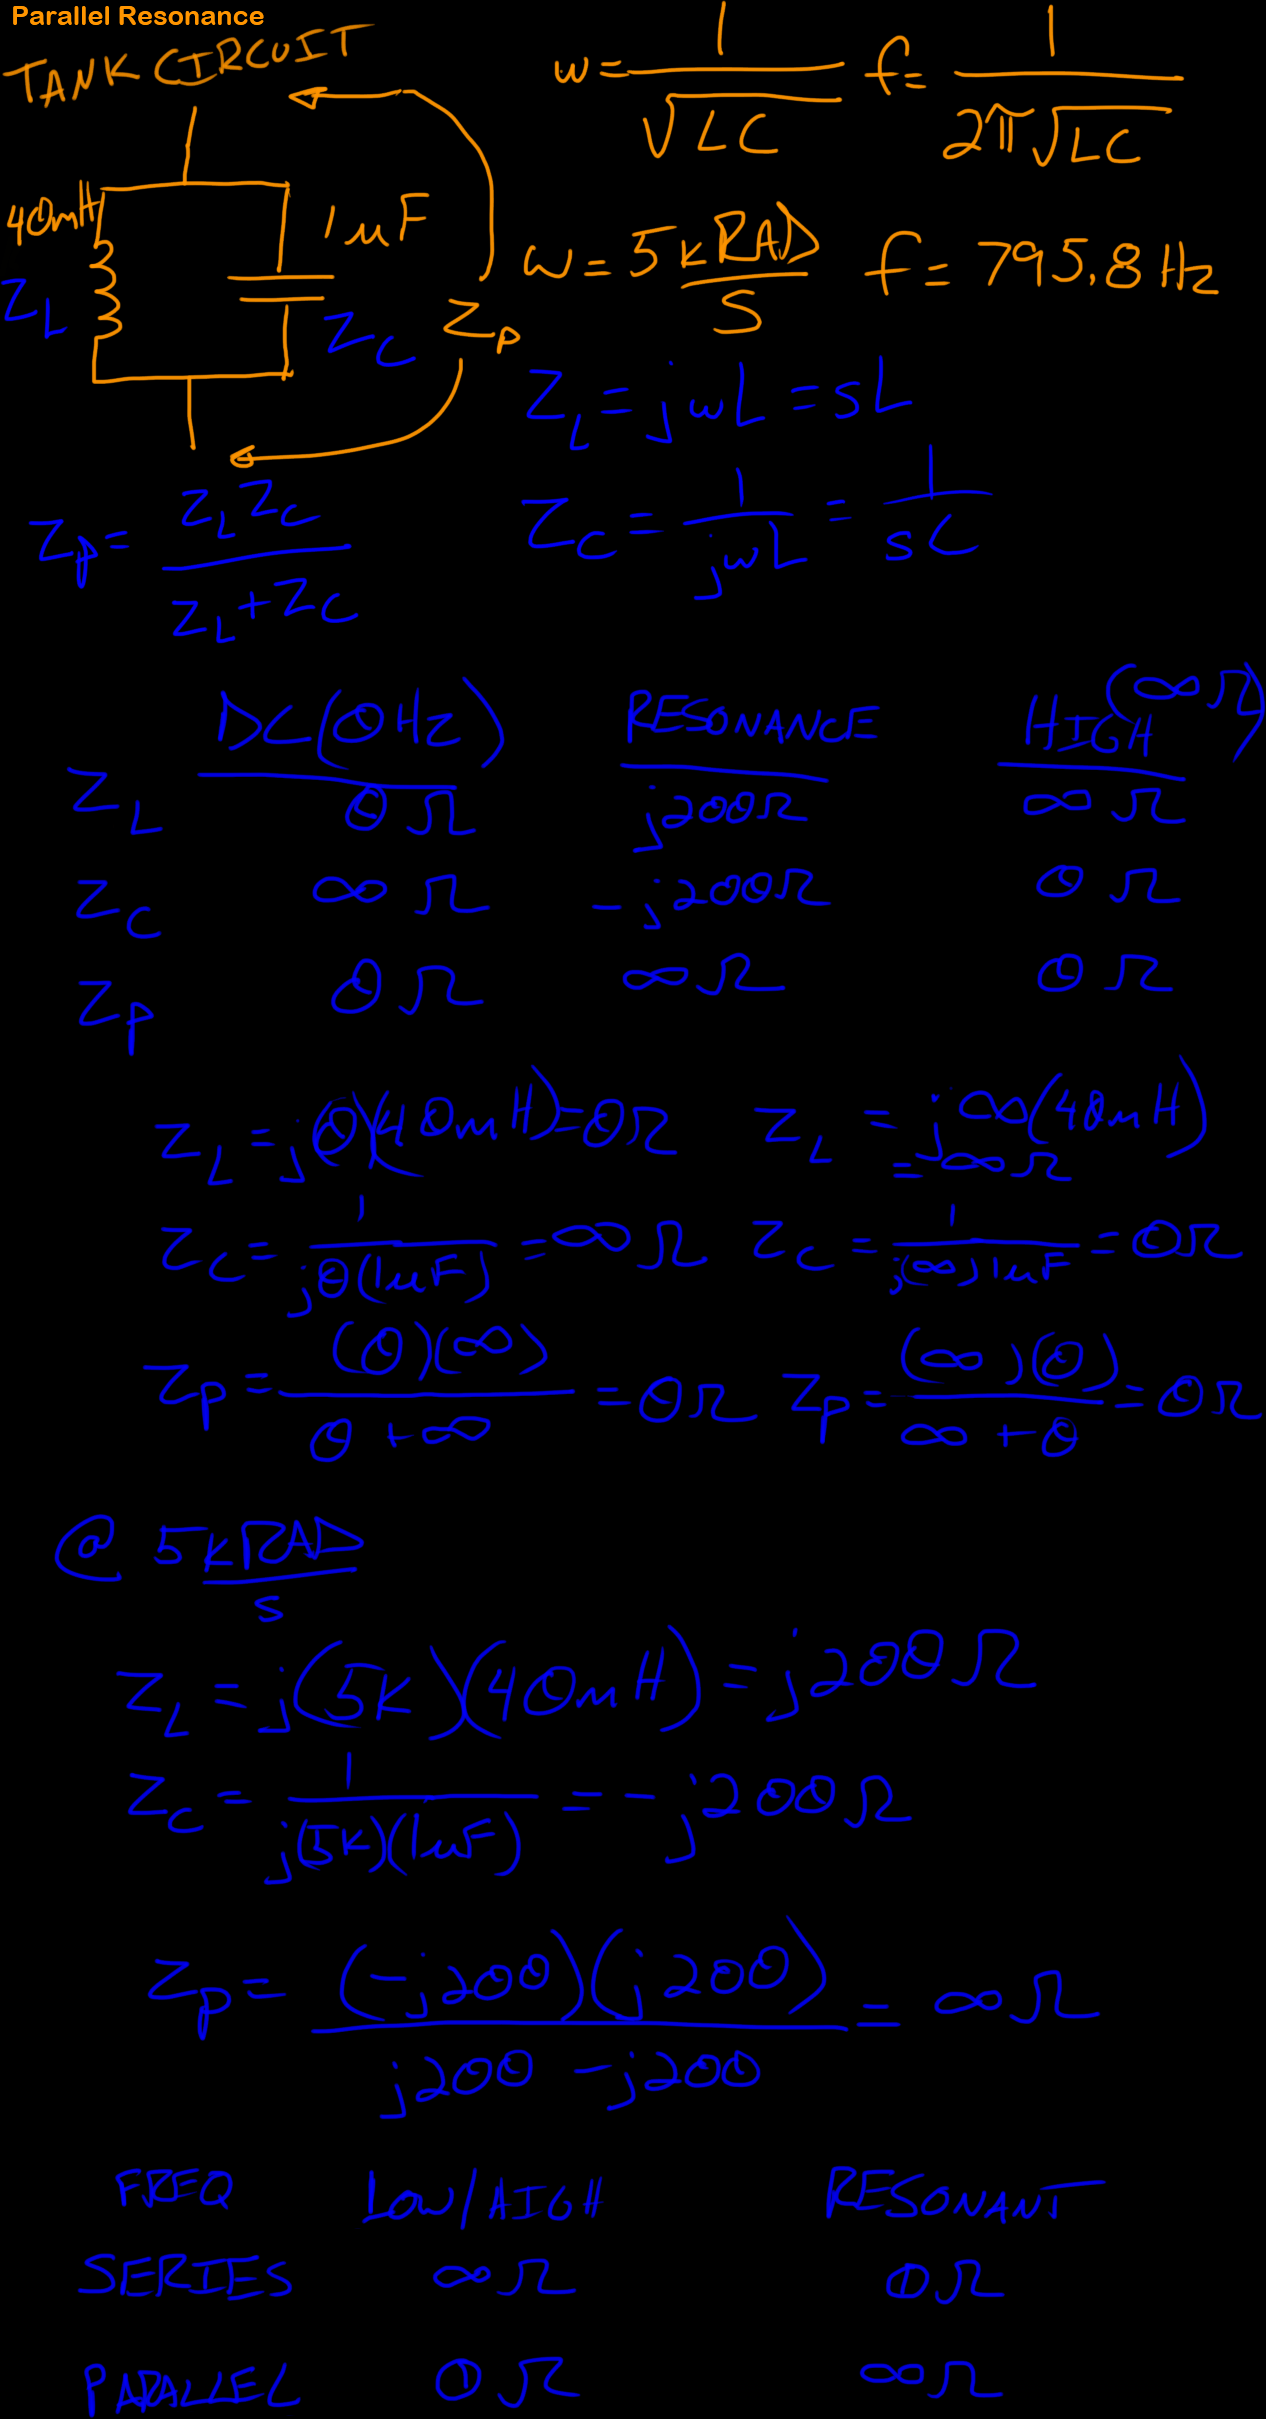 Parallel Resonance
TANK CIRCUIT
w = 1/√LC f = 1/2π√LC
40mH 1uF
w = 5k RAD/S f = 795.8 Hz
Z_L Z_C Z_P
Z_L = jwL = sL
Z_P = Z_L Z_C / Z_L + Z_C
Z_C = 1/jwL = 1/sC
DC (0Hz) RESONANCE HIGH (∞Ω)
Z_L 0Ω j200Ω ∞Ω
Z_C ∞Ω -j200Ω 0Ω
Z_P 0Ω ∞Ω 0Ω
Z_L = j0(40mH) = 0Ω Z_L = j∞(40mH)
= ∞Ω
Z_C = 1/j0(1uF) = ∞Ω Z_C = 1/j(∞)1uF = 0Ω
Z_P = (0)(∞)/0+∞ = 0Ω Z_P = (∞)(0)/∞+0 = 0Ω
@ 5k RAD/S
Z_L = j(5k)(40mH) = j200Ω
Z_C = 1/j(5k)(1uF) = -j200Ω
Z_P = (-j200)(j200)/j200 - j200 = ∞Ω
FREQ LOW/HIGH RESONANT
SERIES ∞Ω 0Ω
PARALLEL 0Ω ∞Ω